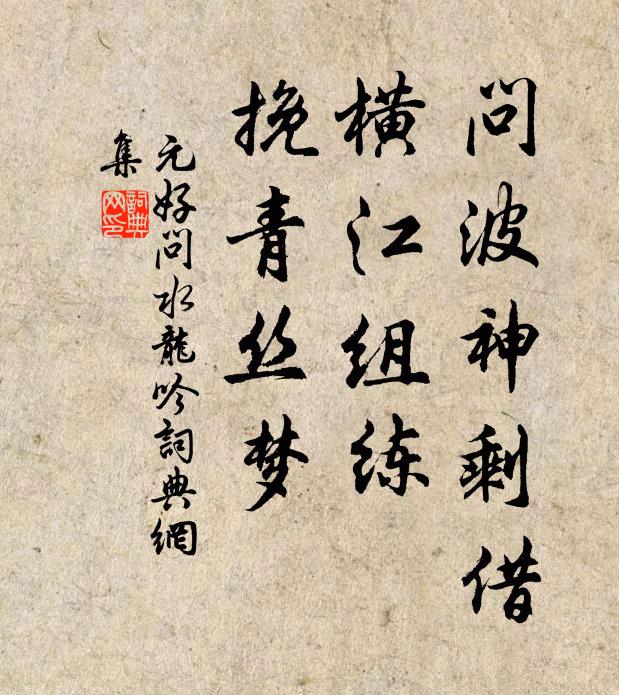 问波神剩借
横江组练
挽青丝梦
元好问水龍吟詞典網
集
詞典
网印